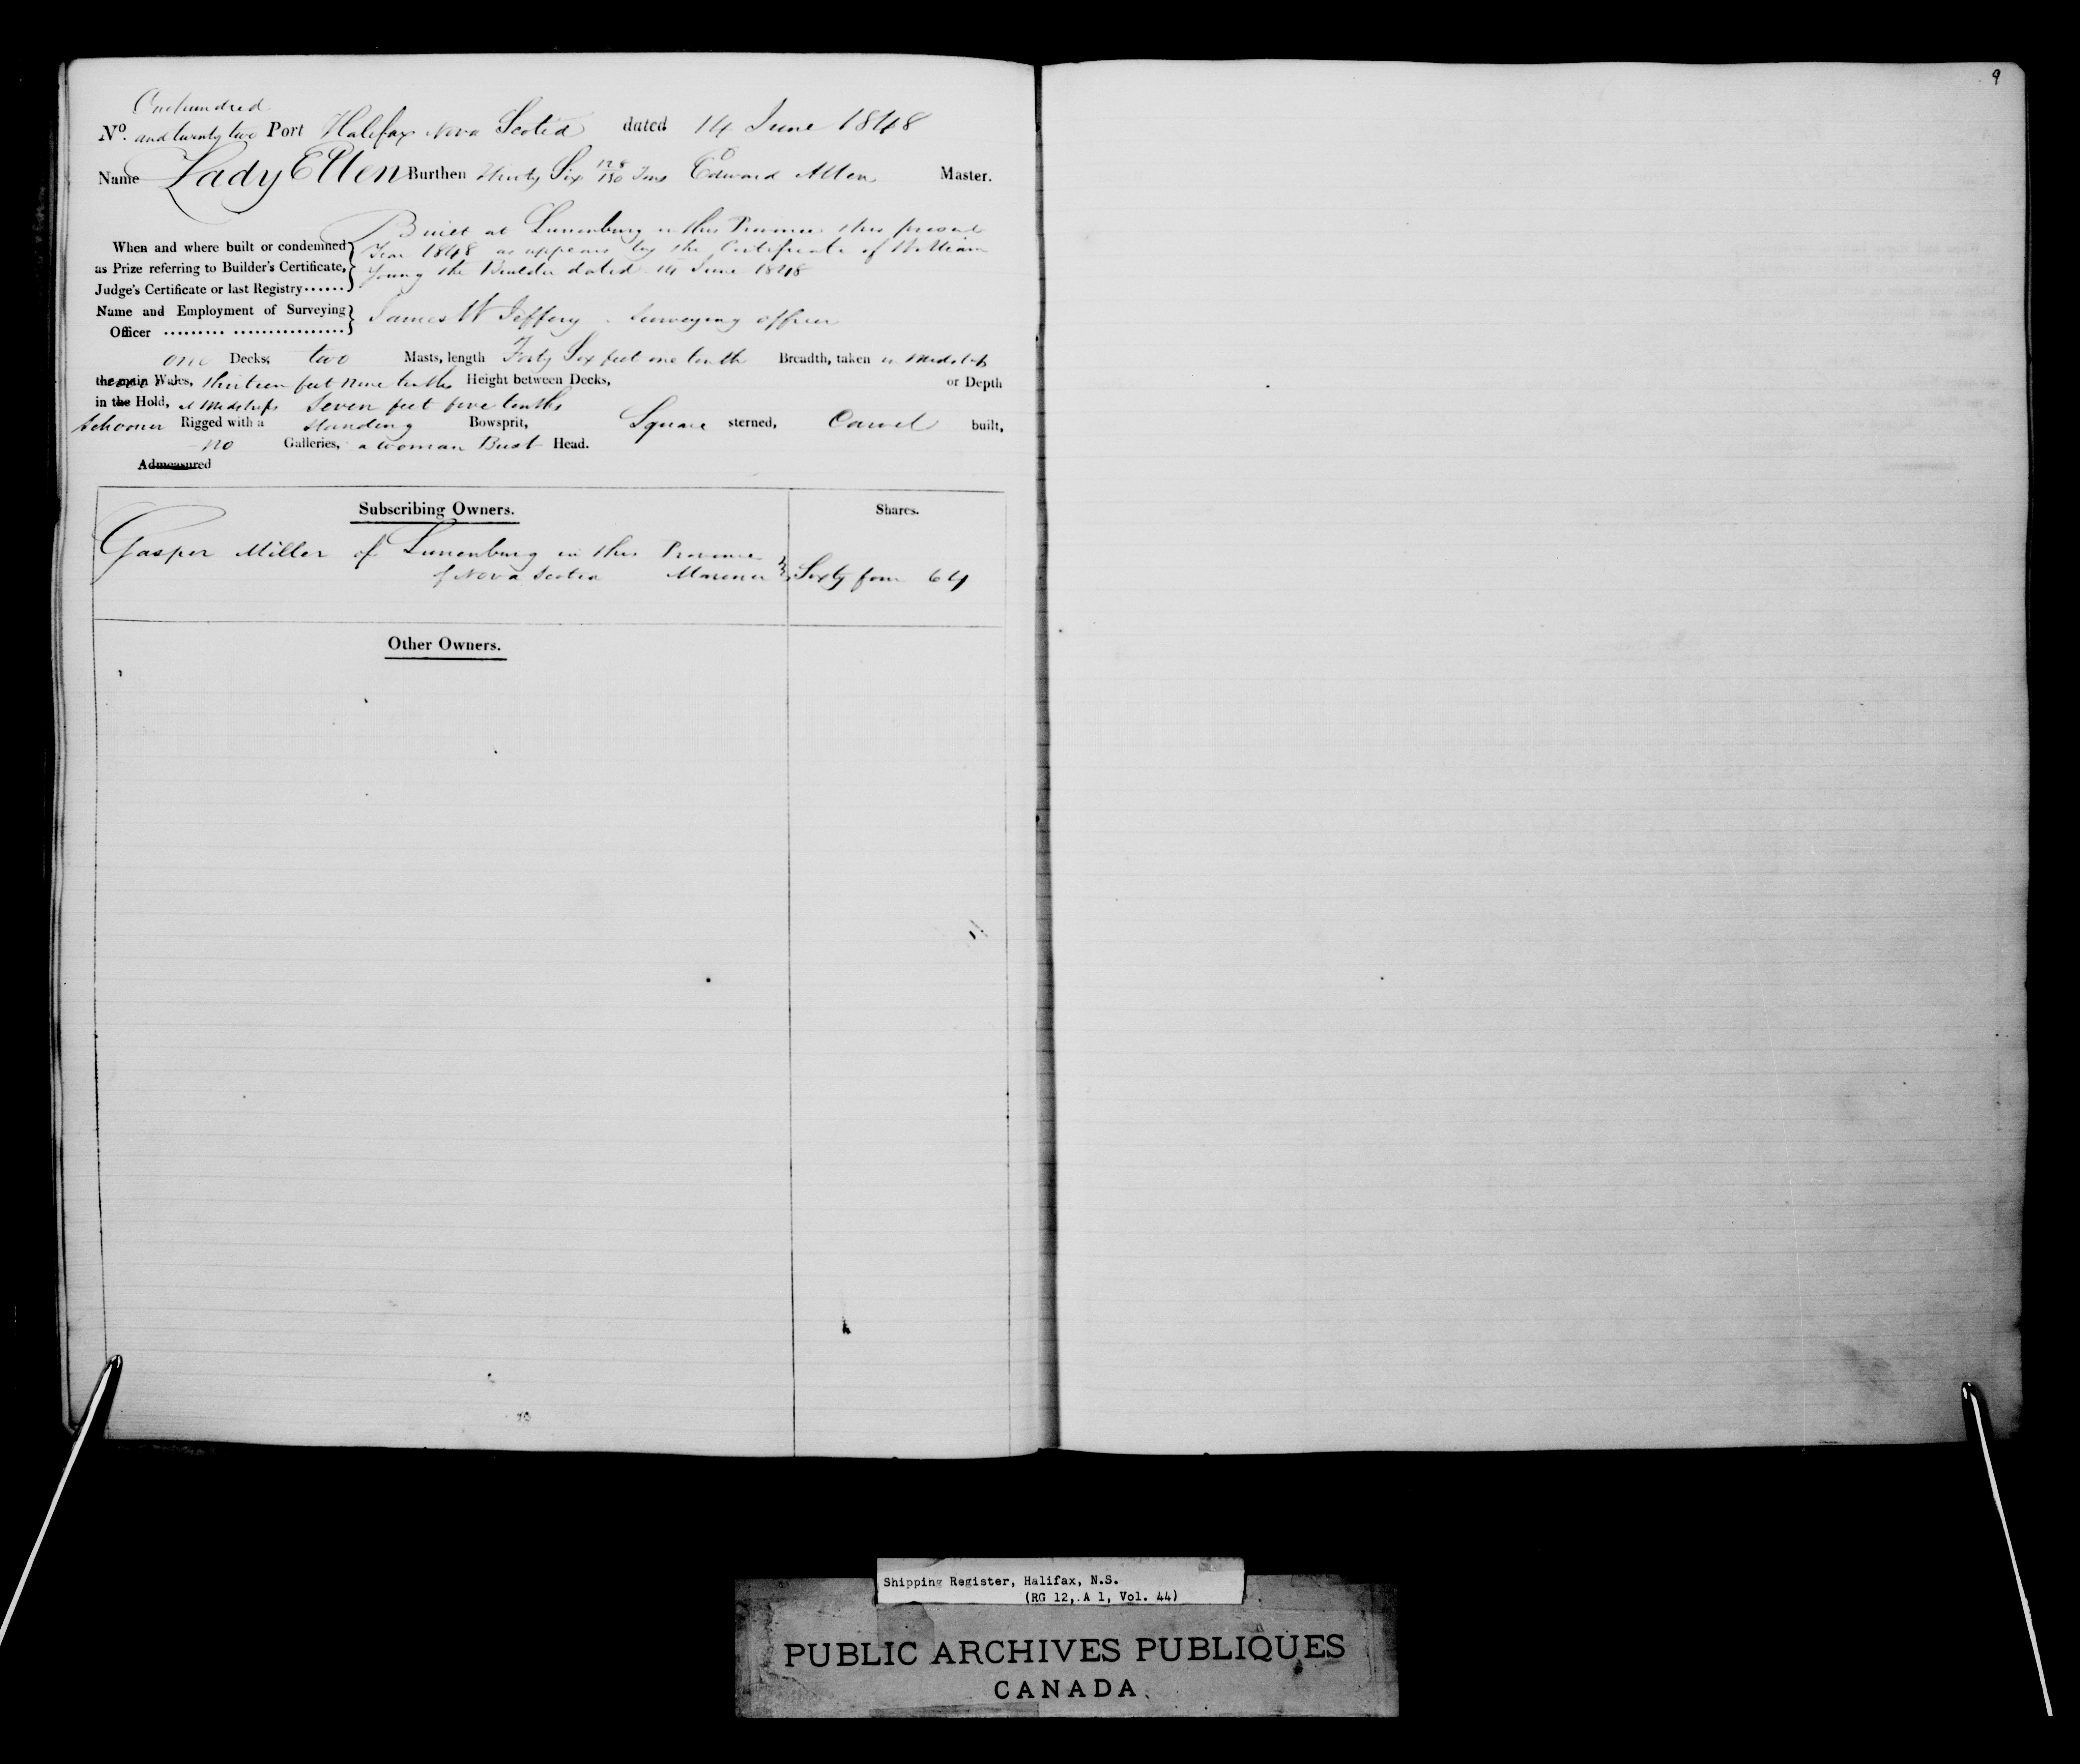 9
One hundred
No. and twenty two Port Halifax Nova Scotia dated 14 June 1848
Name Lady Ellen Burthen Thirty Six 128/130 Tons Edward Allen Master.
Built at Lunenburg in this Province this present
When and where built or condemned Year 1848 as appears by the Certificate of William
as Prize referring to Builder's Certificate, Young the Builder dated 14 June 1848
Judge's Certificate or last Registry......
Name and Employment of Surveying James W Jeffery Surveying officer
Officer ......... ................
one Decks, two Masts, length Forty Six feet one tenth Breadth, taken in Midships
the main Wales, thirteen feet nine tenths Height between Decks, or Depth
in the Hold, at Midships Seven feet five tenths
Schooner Rigged with a Standing Bowsprit, Square sterned, Carvel built,
no Galleries, a woman Bust Head.
Admeasured
Subscribing Owners. Shares.
Gasper Miller of Lunenburg in this Province
of Nova Scotia Mariner Sixty four 64
Other Owners.
Shipping Register, Halifax, N.S.
(RG 12, A 1, Vol. 44)
PUBLIC ARCHIVES PUBLIQUES
CANADA